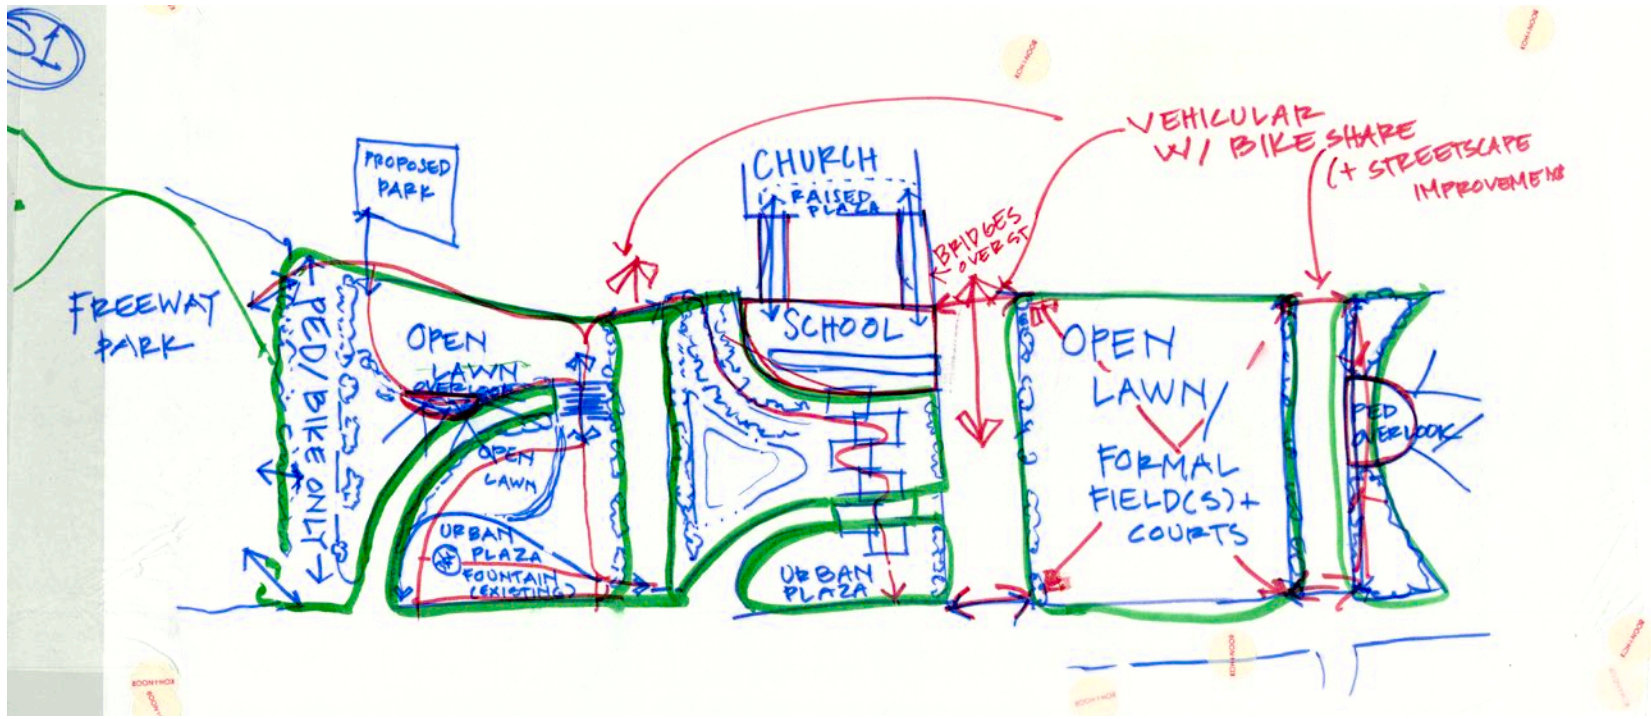 S1
PROPOSED
PARK
FREEWAY
PARK
PED/BIKE ONLY
OPEN
LAWN
OVERLOOK
OPEN
LAWN
URBAN
PLAZA
FOUNTAIN
(EXISTING)
CHURCH
RAISED
PLAZA
SCHOOL
URBAN
PLAZA
BRIDGES
OVER ST
VEHICULAR
W/ BIKE SHARE
(+ STREETSCAPE
IMPROVEMENTS
OPEN
LAWN/
FORMAL
FIELD(S)+
COURTS
PED
OVERLOOK